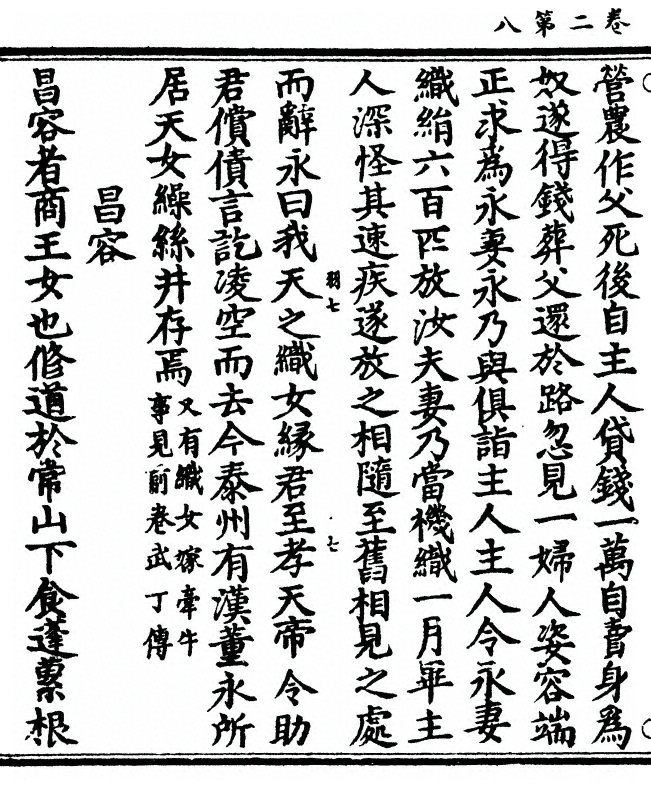 卷二第八
管農作父死後自主人貸錢一萬自賣身爲
奴遂得錢葬父還於路忽見一婦人姿容端
正求爲永妻永乃與俱詣主人主人令永妻
織絹六百匹放汝夫妻乃當機織一月畢主
人深怪其速疾遂放之相隨至舊相見之處
羽七
七
而辭永曰我天之織女緣君至孝天帝令助
君償債言訖凌空而去今泰州有漢董永所
居天女繰絲井存焉又有織女嫁牽牛
事見前卷武丁傳
昌容
昌容者商王女也修道於常山下食蓬虆根